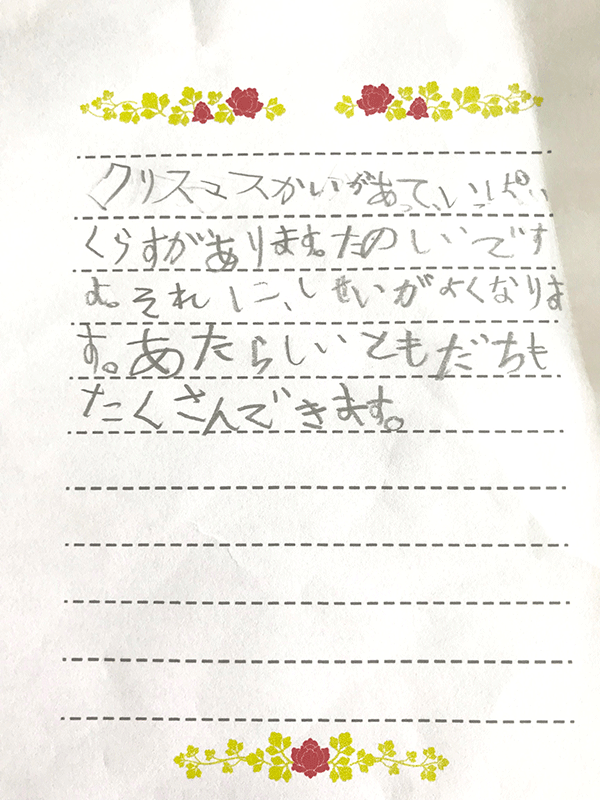 クリスマスかいがあって、いっぱい
くらすがあります。たのしいです
よ。それに、しせいがよくなりま
す。あたらしいともだちも
たくさんできます。